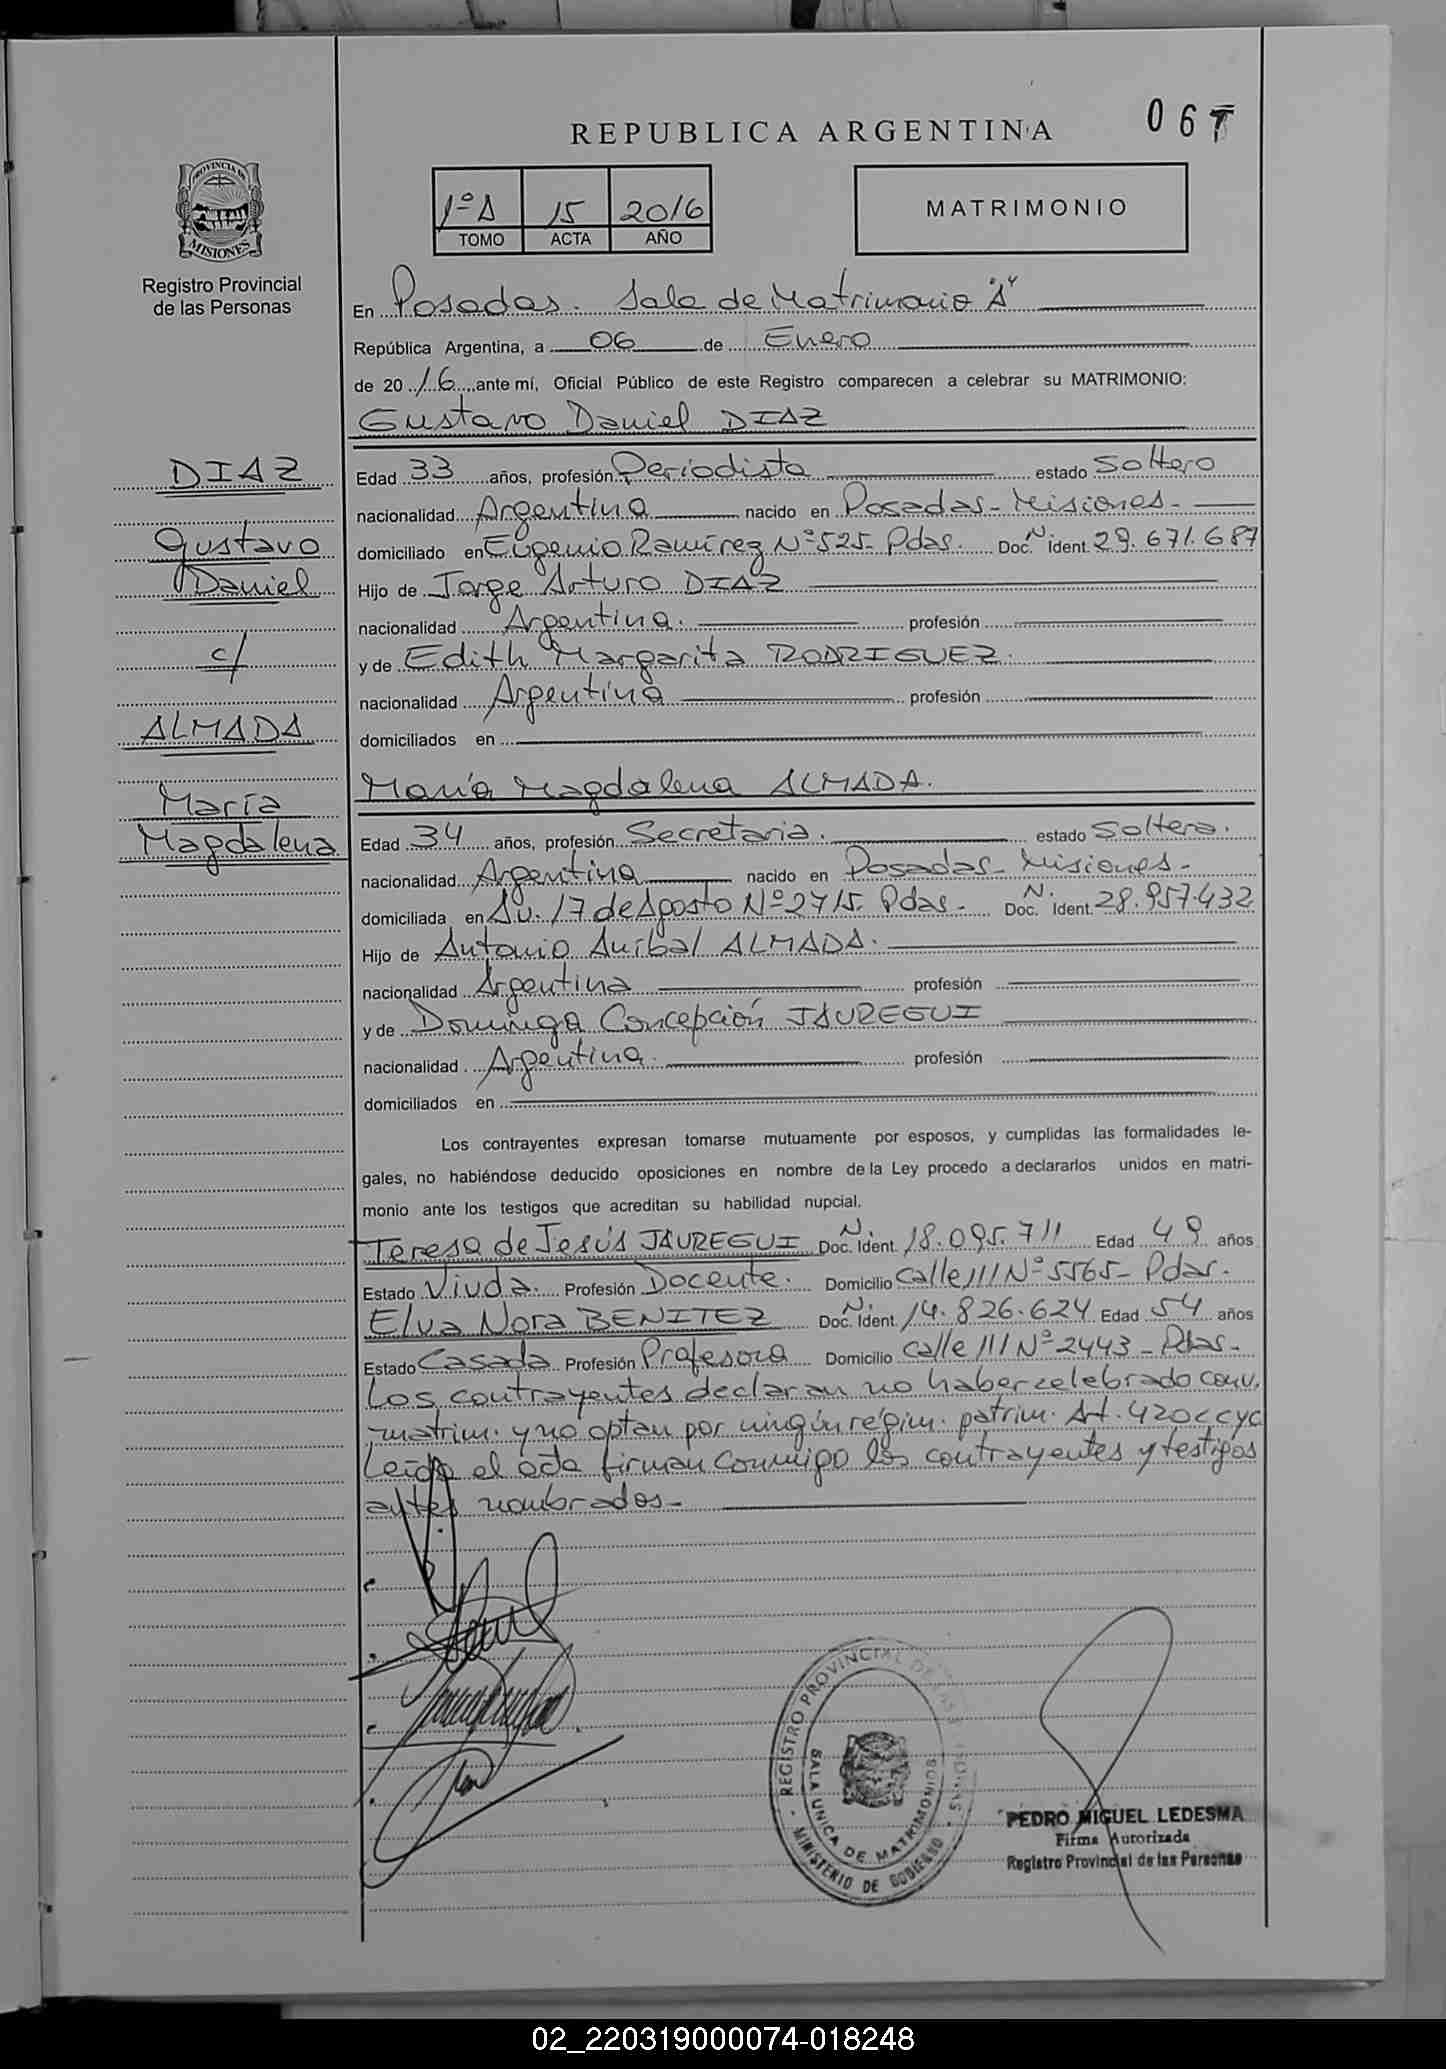 REPUBLICA ARGENTINA
067
PROVINCIA DE
MISIONES
Registro Provincial
de las Personas
1º A 15 2016
TOMO ACTA AÑO
MATRIMONIO
En Posadas. Sala de Matrimonio "A"
República Argentina, a 06 de Enero
de 2016 ante mí, Oficial Público de este Registro comparecen a celebrar su MATRIMONIO:
Gustavo Daniel DIAZ
DIAZ
Gustavo
Daniel
c/
ALMADA
María
Magdalena
Edad 33 años, profesión Periodista estado Soltero
nacionalidad Argentina nacido en Posadas - Misiones -
domiciliado en Eugenio Ramírez Nº 525 - Pdas. Doc. N. Ident. 29.671.687
Hijo de Jorge Arturo DIAZ
nacionalidad Argentina. profesión
y de Edith Margarita RODRIGUEZ.
nacionalidad Argentina profesión
domiciliados en
María Magdalena ALMADA.
Edad 34 años, profesión Secretaria. estado Soltera.
nacionalidad Argentina nacido en Posadas - Misiones -
domiciliada en Av. 17 de Agosto Nº 2715. Pdas. Doc. N. Ident. 28.957.432
Hijo de Antonio Aníbal ALMADA.
nacionalidad Argentina profesión
y de Dominga Concepción JAUREGUI
nacionalidad Argentina. profesión
domiciliados en
Los contrayentes expresan tomarse mutuamente por esposos, y cumplidas las formalidades le-
gales, no habiéndose deducido oposiciones en nombre de la Ley procedo a declararlos unidos en matri-
monio ante los testigos que acreditan su habilidad nupcial.
Teresa de Jesús JAUREGUI Doc. N. Ident. 18.095.711 Edad 49 años
Estado Viuda. Profesión Docente. Domicilio Calle 111 Nº 5565 - Pdas.
Elva Nora BENITEZ Doc. N. Ident. 14.826.624 Edad 54 años
Estado Casada Profesión Profesora Domicilio calle 111 Nº 2443 - Pdas.
Los contrayentes declaran no haber celebrado conv.
matrim. y no optan por ningún régim. patrim. Art. 420 ccyc
Leída el acta firman conmigo los contrayentes y testigos
antes nombrados -
REGISTRO PROVINCIAL DE LAS PERSONAS
SALA UNICA DE MATRIMONIOS
MINISTERIO DE GOBIERNO
PEDRO MIGUEL LEDESMA
Firma Autorizada
Registro Provincial de las Personas
02_220319000074-018248